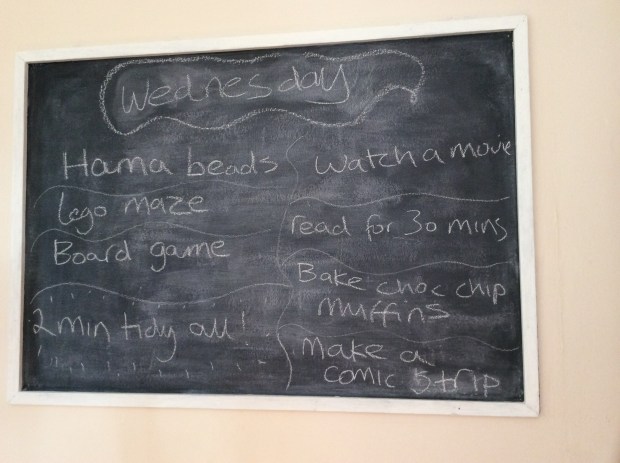 Wednesday
Hama beads
Lego maze
Board game
2 min tidy all!
Watch a movie
read for 30 mins
Bake choc chip
muffins
make a
comic strip